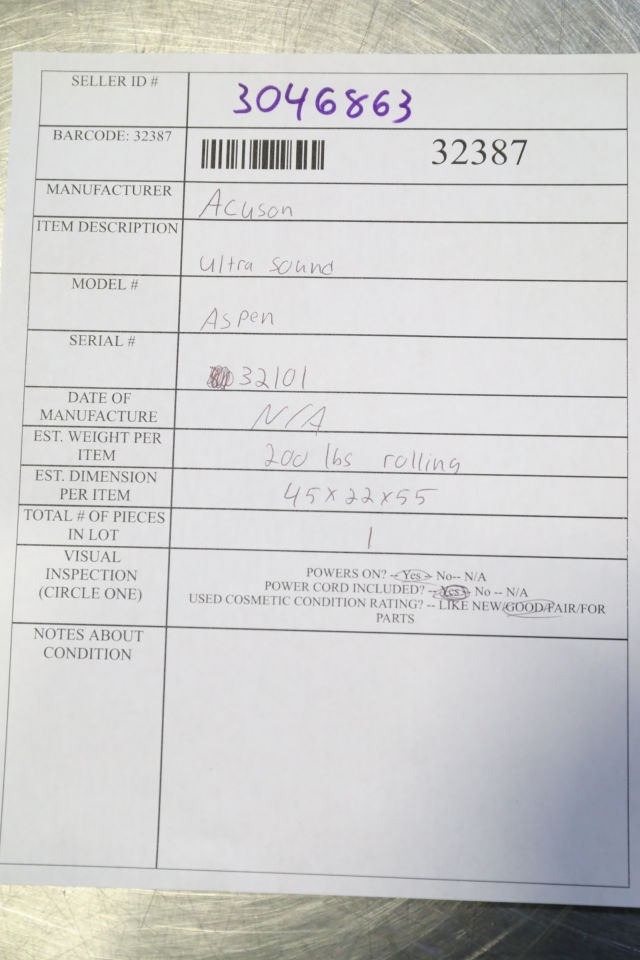 SELLER ID # 3046863
BARCODE: 32387 32387
MANUFACTURER Acuson
ITEM DESCRIPTION Ultra sound
MODEL # Aspen
SERIAL # 32101
DATE OF
MANUFACTURE N/A
EST. WEIGHT PER
ITEM 200 lbs rolling
EST. DIMENSION
PER ITEM 45x22x55
TOTAL # OF PIECES
IN LOT 1
VISUAL
INSPECTION
(CIRCLE ONE)
POWERS ON? -- Yes -- No-- N/A
POWER CORD INCLUDED? -- Yes -- No -- N/A
USED COSMETIC CONDITION RATING? -- LIKE NEW/GOOD/FAIR/FOR
PARTS
NOTES ABOUT
CONDITION